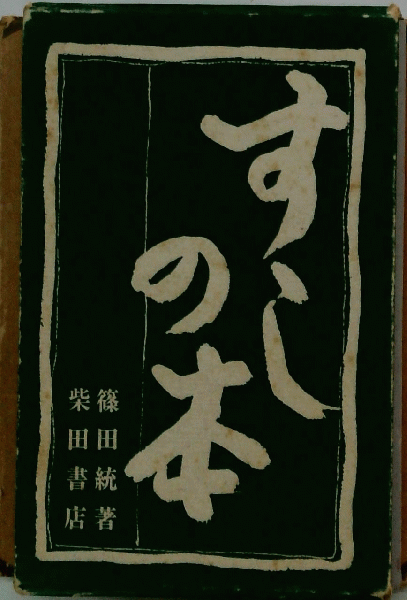 すし
の本
篠田統著
柴田書店